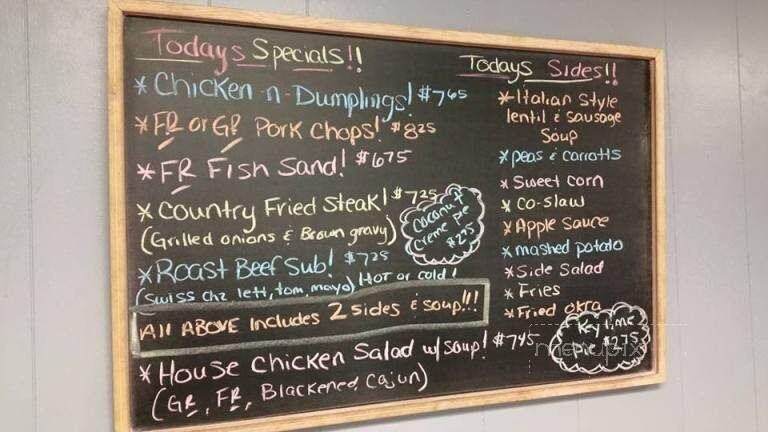 Todays Specials!!
* Chicken-n-Dumplings! $7.45
* FR or GR Pork Chops! $8.25
* FR Fish Sand! $6.75
* Country Fried Steak! $7.25
(Grilled onions & Brown gravy)
Coconut
Creme Pie
$2.75
* Roast Beef Sub! $7.25
(Swiss chz, lett, tom, mayo) Hot or cold!
All ABOVE Includes 2 sides & soup!!!
* House Chicken Salad w/ soup! $7.45
(GR, FR, Blackened, Cajun)
Todays Sides!!
* Italian Style
lentil & sausage
Soup
* peas & carrotts
* Sweet corn
* co-slaw
* Apple Sauce
* mashed potato
* Side Salad
* Fries
* Fried okra
Key lime
Pie $2.75
menupix